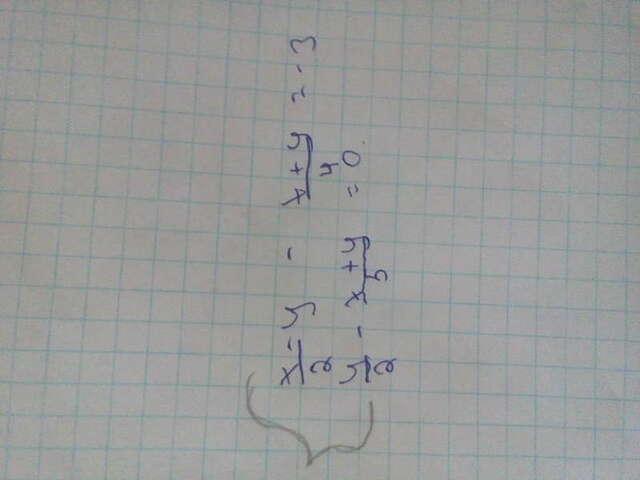 x/2 - y - (x + y)/4 = -3
y/2 - (x + y)/5 = 0.